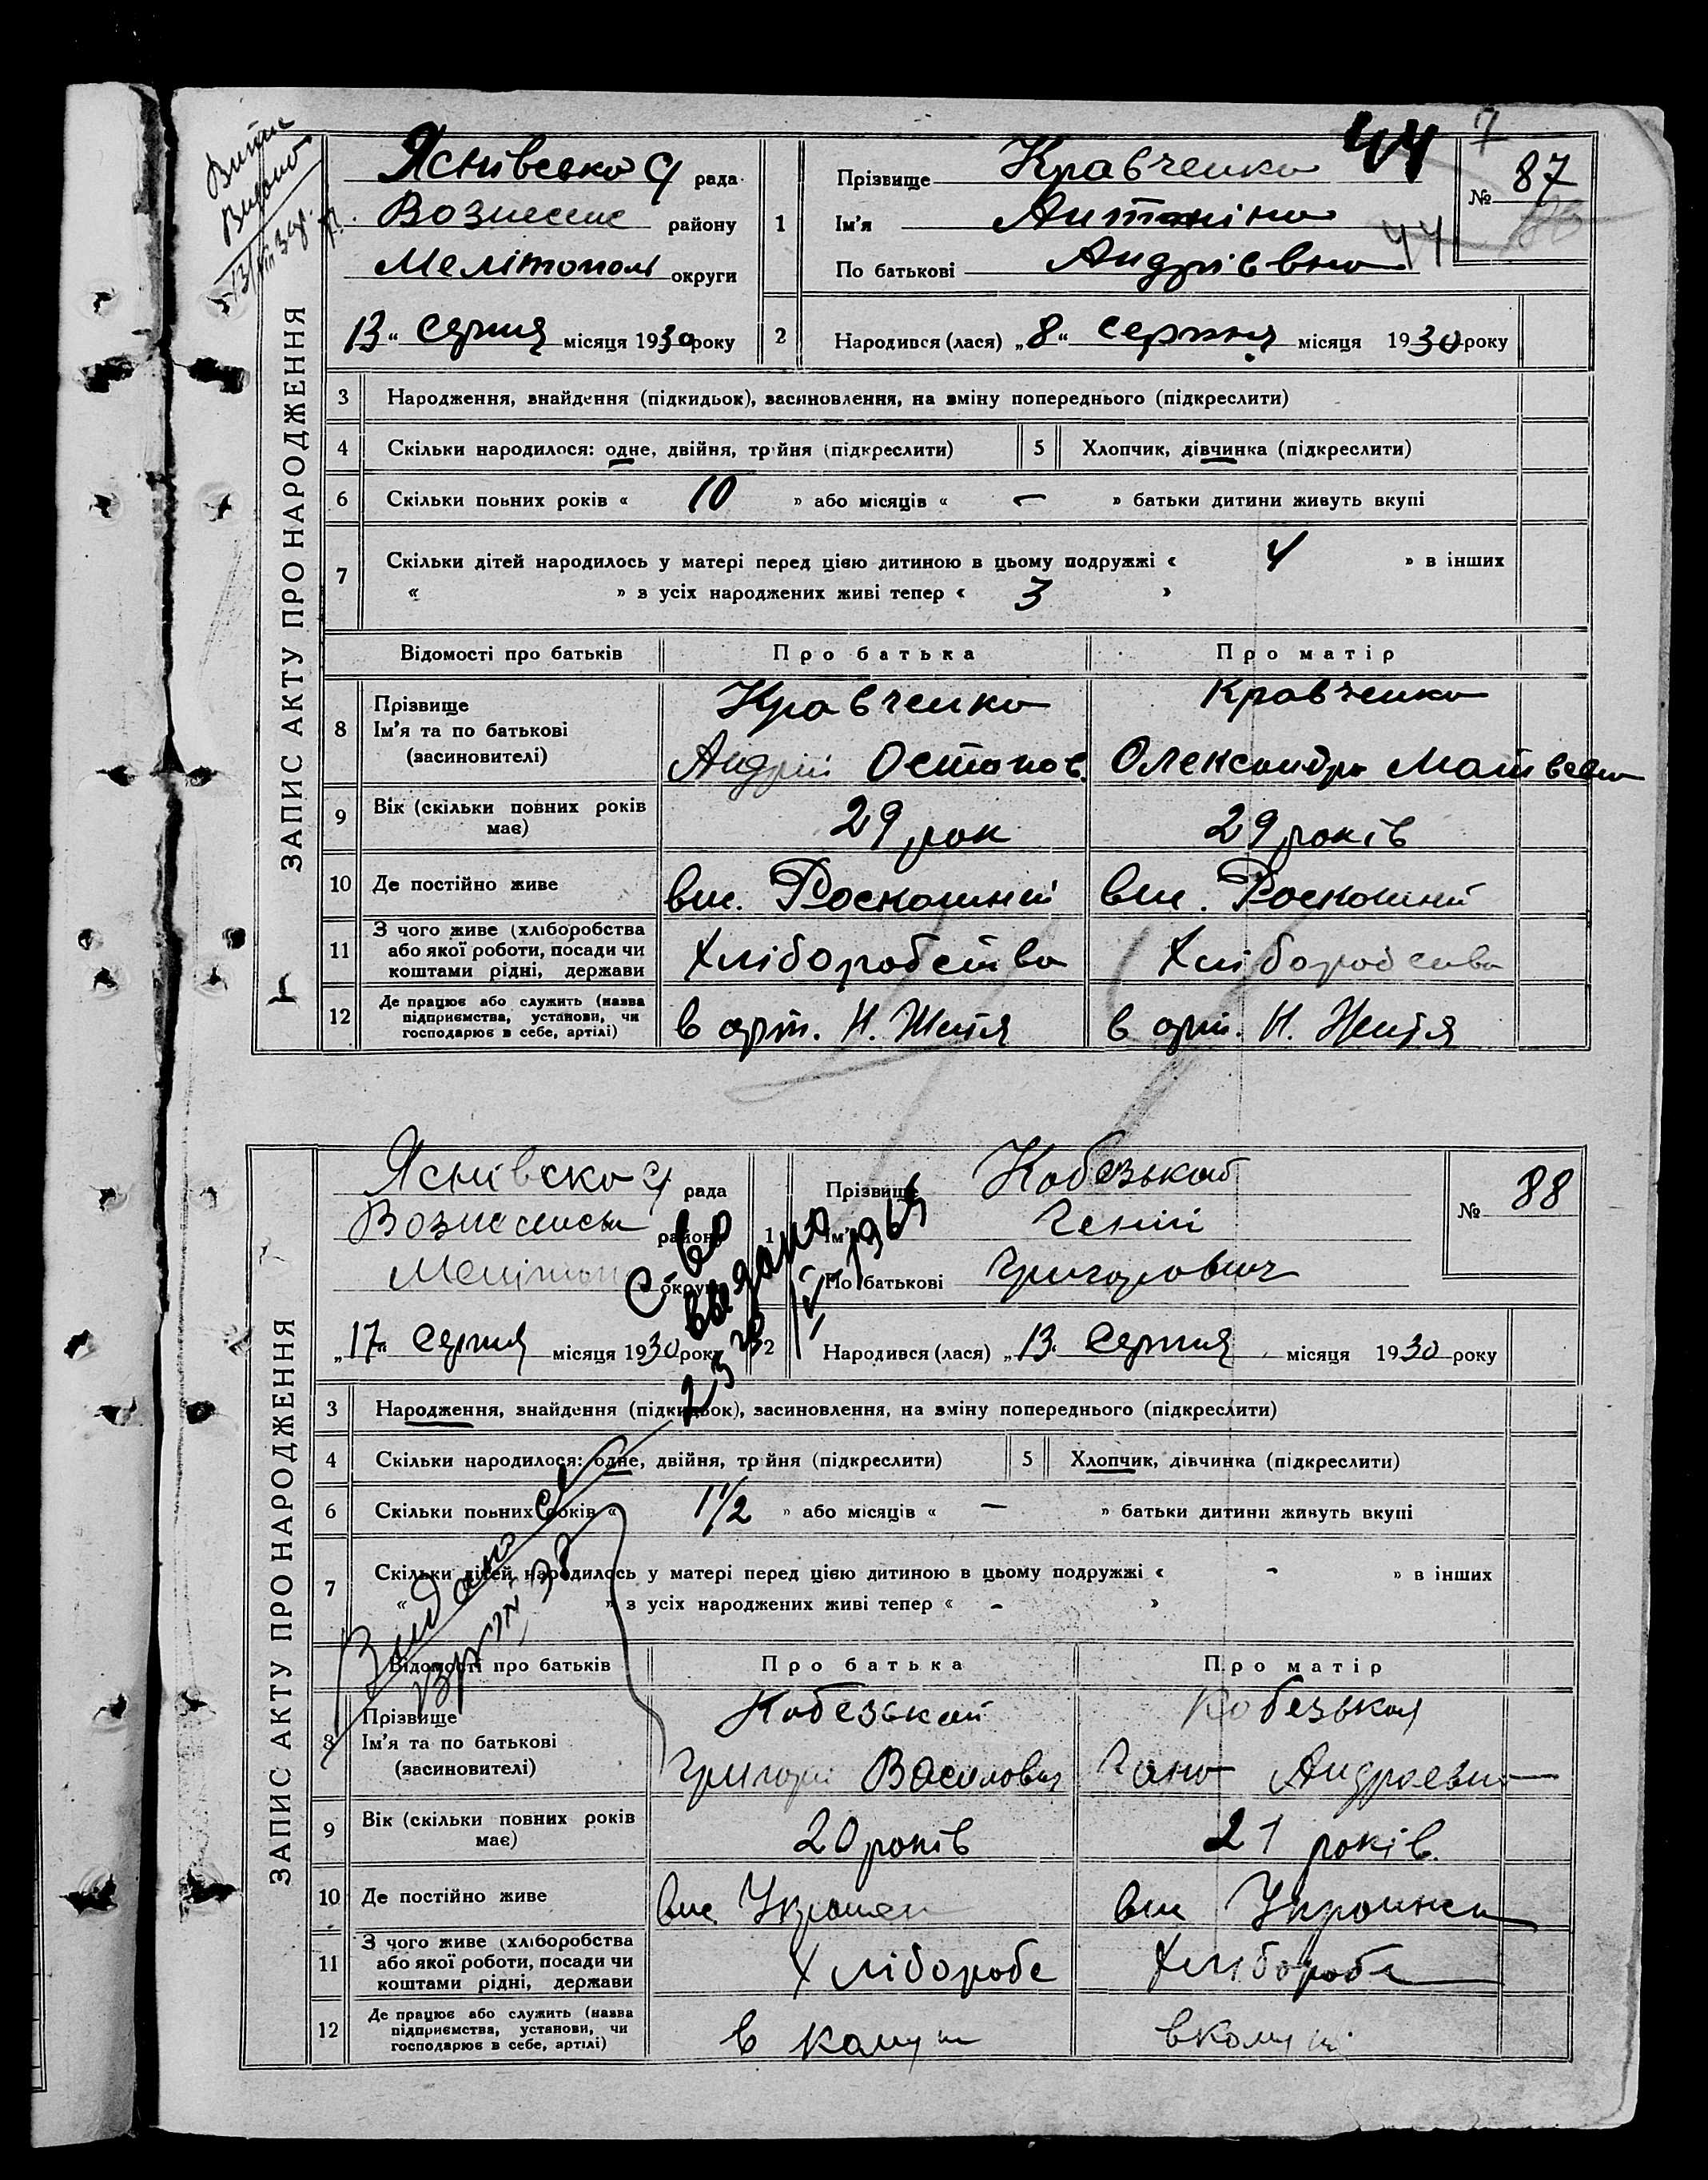 44
7
Яснівська рада
Вознесенс району
Мелітополь округи
„13“ Серпня місяця 1930 року
1
Прізвище Кравченко
Ім'я Антоніна
По батькові Андріївна
№ 87
44
2
Народився (лася) „8“ Серпня місяця 1930 року
ЗАПИС АКТУ ПРО НАРОДЖЕННЯ
3 Народження, знайдення (підкидьок), засиновлення, на зміну попереднього (підкреслити)
4 Скільки народилося: одне, двійня, трійня (підкреслити) 5 Хлопчик, дівчинка (підкреслити)
6 Скільки повних років « 10 » або місяців « – » батьки дитини живуть вкупі
7 Скільки дітей народилось у матері перед цією дитиною в цьому подружжі « 4 » в інших
« » з усіх народжених живі тепер « 3 »
Відомості про батьків Про батька Про матір
8 Прізвище Кравченко Кравченко
Ім'я та по батькові Андрій Остапов. Олександра Матвеевна
(засиновителі)
9 Вік (скільки повних років має) 29 рок 29 років
10 Де постійно живе вис. Роскошний вис. Роскошний
11 З чого живе (хліборобства
або якої роботи, посади чи
коштами рідні, держави Хліборобства Хліборобства
12 Де працює або служить (назва
підприємства, установи, чи
господарює в себе, артілі) в арт. Н. Життя в арт. Н. Життя
Яснівська рада
Вознесенськ району
Мелітоп округи
„17“ Серпня місяця 1930 року
1
Прізвище Кобезький
Ім'я Геній
По батькові Григорович
№ 88
2
Народився (лася) „13“ Серпня місяця 1930 року
С-во
выдано
23/IV-1963
ЗАПИС АКТУ ПРО НАРОДЖЕННЯ
3 Народження, знайдення (підкидьок), засиновлення, на зміну попереднього (підкреслити)
4 Скільки народилося: одне, двійня, трійня (підкреслити) 5 Хлопчик, дівчинка (підкреслити)
6 Скільки повних років « 1 1/2 » або місяців « – » батьки дитини живуть вкупі
7 Скільки дітей народилось у матері перед цією дитиною в цьому подружжі « - » в інших
« » з усіх народжених живі тепер « - »
Видано
Відомості про батьків Про батька Про матір
8 Прізвище Кобезький Кобезькая
Ім'я та по батькові Григорій Васильович Гана Андреевна
(засиновителі)
9 Вік (скільки повних років має) 20 років 21 років.
10 Де постійно живе вис. Украинск вис Украинск
11 З чого живе (хліборобства
або якої роботи, посади чи
коштами рідні, держави Хлібороба Хлібороба
12 Де працює або служить (назва
підприємства, установи, чи
господарює в себе, артілі) в комун в комун